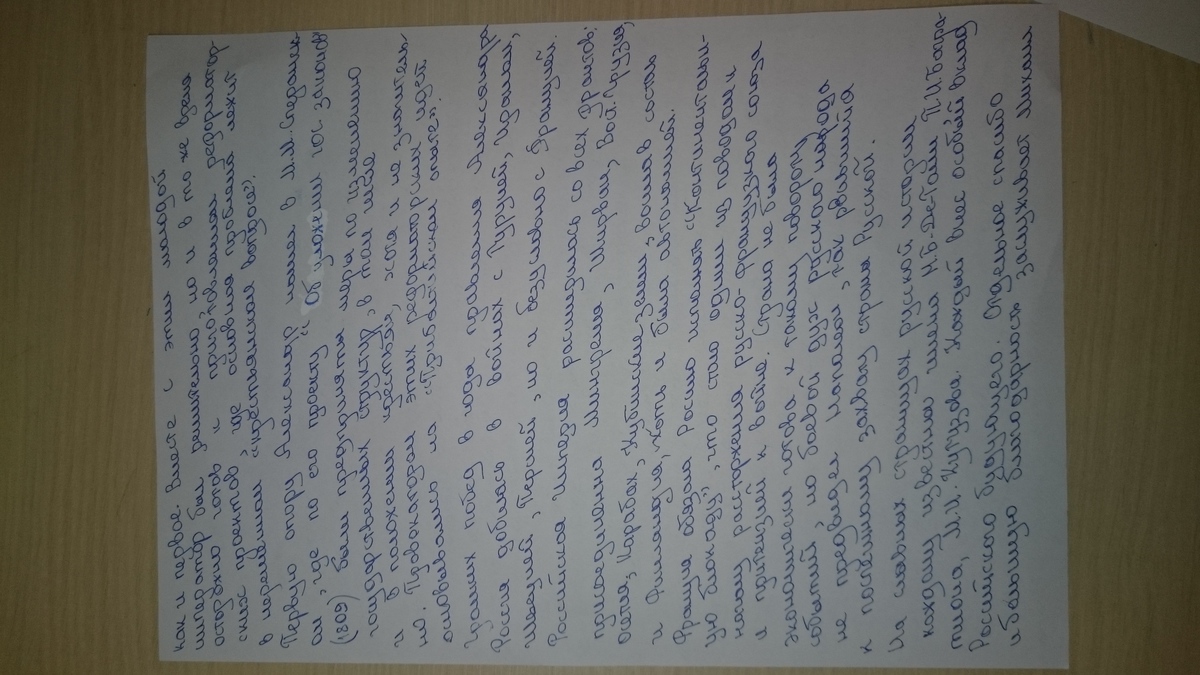 как и первое. Вместе с этим молодой
император был решительно но и в то же время
осторожно готов к приготовлениям реформатор-
ских проектов, где основная проблема лежит
в нерешимом "крестьянском вопросе".
Первую опору Александр нашел в М.М. Сперанск-
ом, где по его проекту "Об уложении гос. законов"
(1809) были предприняты меры по изменению
государственных структур, в том числе
и в положении крестьян, хотя и не значитель-
но. Провокатором этих реформаторских идей
основывались на "Прибалтийском опыте".
Громких побед в годы правления Александра
Россия добилась в войнах с Турцией, Italией,
Швецией, Персией, но и безусловно с Францией.
Российская Империя расширилась со всех фронтов:
присоединена Мингрелия, Ширван, Вост. Грузия,
Карабах, Кубинские земли, вошла в состав
и Финляндия, хоть и была автономией.
Франция обязала Россию исполнять "Континентальн-
ую блокаду", что стало одним из поводом к
началу расторжения русско-французского союза
и претензией к войне. Страна не была
экономически готова к такому повороту
событий, но боевой дух русского народа
не предвидел Наполеон, так рвившийся
к поспешному захвату страны Русской.
На славных страницах русской истории
каждому известны имена М.Б. Де-Толли, П.И. Багра-
тиона, М.И. Кутузова. Каждый внес особый вклад
Российского будущего. Отдельное спасибо
и большую благодарность заслуживает Михаил